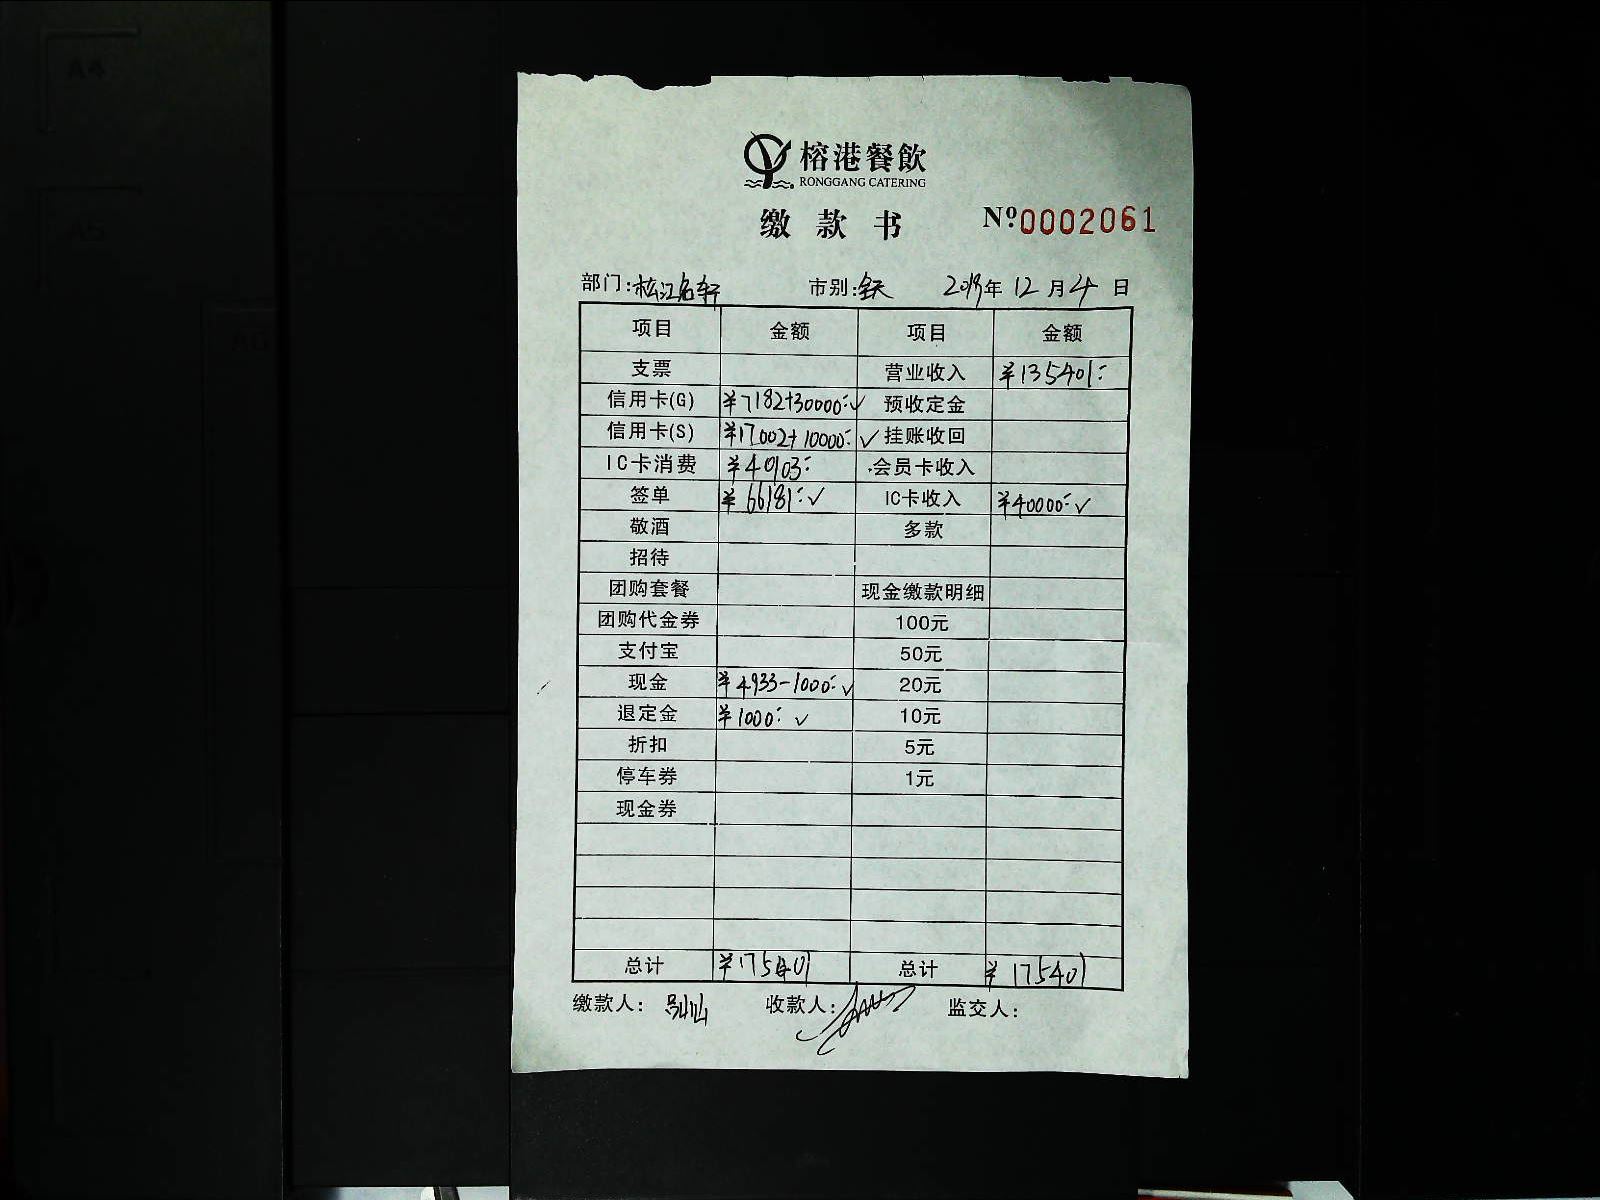 A4
A5
A6
榕港餐飲
RONGGANG CATERING
缴款书 Nº0002061
部门:松江名轩 市别:全天 2019年12月4日
项目 金额 项目 金额
支票 营业收入 ¥135401:
信用卡(G) ¥7182+30000:✓ 预收定金
信用卡(S) ¥17002+10000:✓ 挂账收回
IC卡消费 ¥40103: 会员卡收入
签单 ¥66181:✓ IC卡收入 ¥40000:✓
敬酒 多款
招待
团购套餐 现金缴款明细
团购代金券 100元
支付宝 50元
现金 ¥4933-1000:✓ 20元
退定金 ¥1000:✓ 10元
折扣 5元
停车券 1元
现金券
总计 ¥175401 总计 ¥175401
缴款人: 收款人: 监交人: